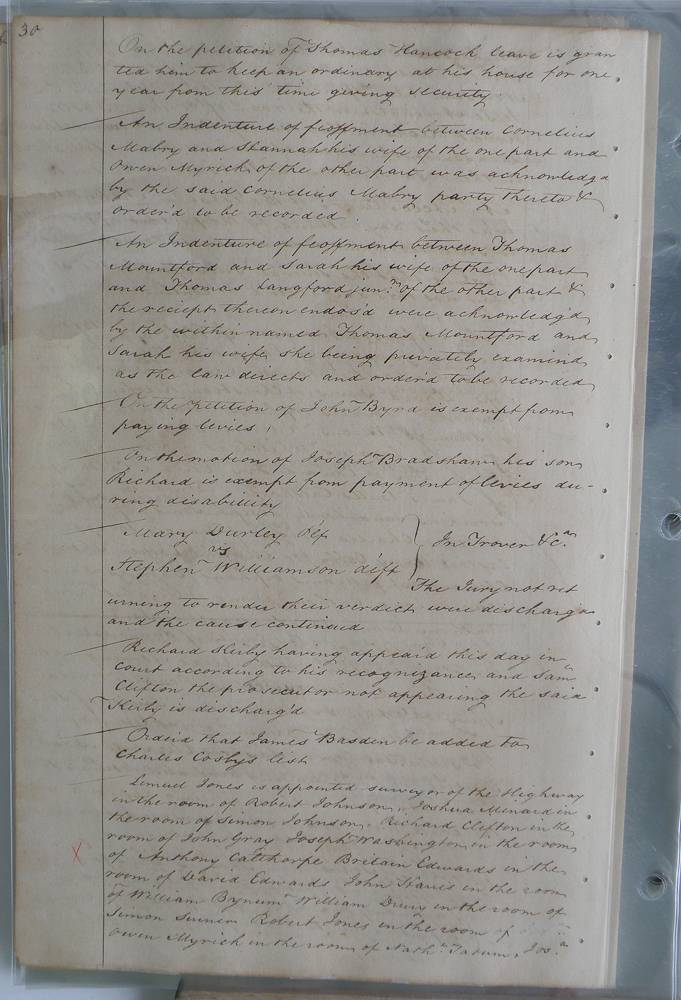 30
On the petition of Thomas Hancock leave is gran
ted him to keep an ordinary at his house for one
year from this time giving security
An Indenture of feoffment between Cornelius
Mabry and Hannah his wife of the one part and
Owen Myrick of the other part was acknowledgd
by the said Cornelius Mabry party thereto &
order'd to be recorded
An Indenture of feoffment between Thomas
Mountford and Sarah his wife of the one part
and Thomas Langford junr of the other part &
the receipt thereon endors'd were acknowledg'd
by the within named Thomas Mountford and
Sarah his wife she being privately examind
as the law directs and order'd to be recorded
On the petition of John Byrd is exempt from
paying levies
On the motion of Joseph Bradshaw his son
Richard is exempt from payment of levies du-
ring disability
Mary Durley Plf
vs
In Trover &ca
Stephen Williamson deft
The Jury not ret
urning to render their verdict were discharg'd
and the cause continued
Richard Kirby having appeaid this day in
Court according to his recognizance and Sam
Clifton the prosecutor not appearing the said
Kirby is discharg'd
Ordeid that James Basden be added to
Charles Cosbys list
Lemuel Jones is appointed surveyor of the Highway
in the room of Robert Johnson, Joshua Minard in
the room of Simon Johnson, Richard Clifton in the
X
room of John Gray Joseph Washington in the room
of Anthony Calthorpe Britain Edwards in the
room of David Edwards John in the room
of William Bynum William Drury in the room of
Simon Robert Jones in the room of
Owen Myrick in the room of Nathl Tatum, Jos